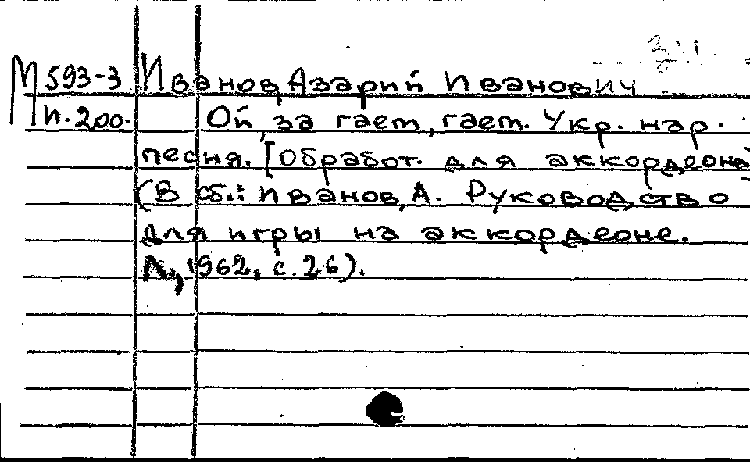 М 593-3 Иванов, Азарий Иванович
н. 200. Ой, за гаем, гаем. Укр. нар.
песня. [Обработ. для аккордеона]
(В сб.: Иванов, А. Руководство
для игры на аккордеоне.
Л., 1962, с. 26).